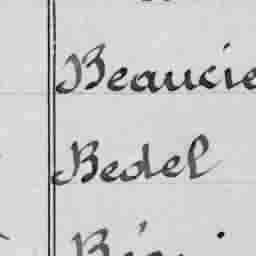 Beaucie
Bedel